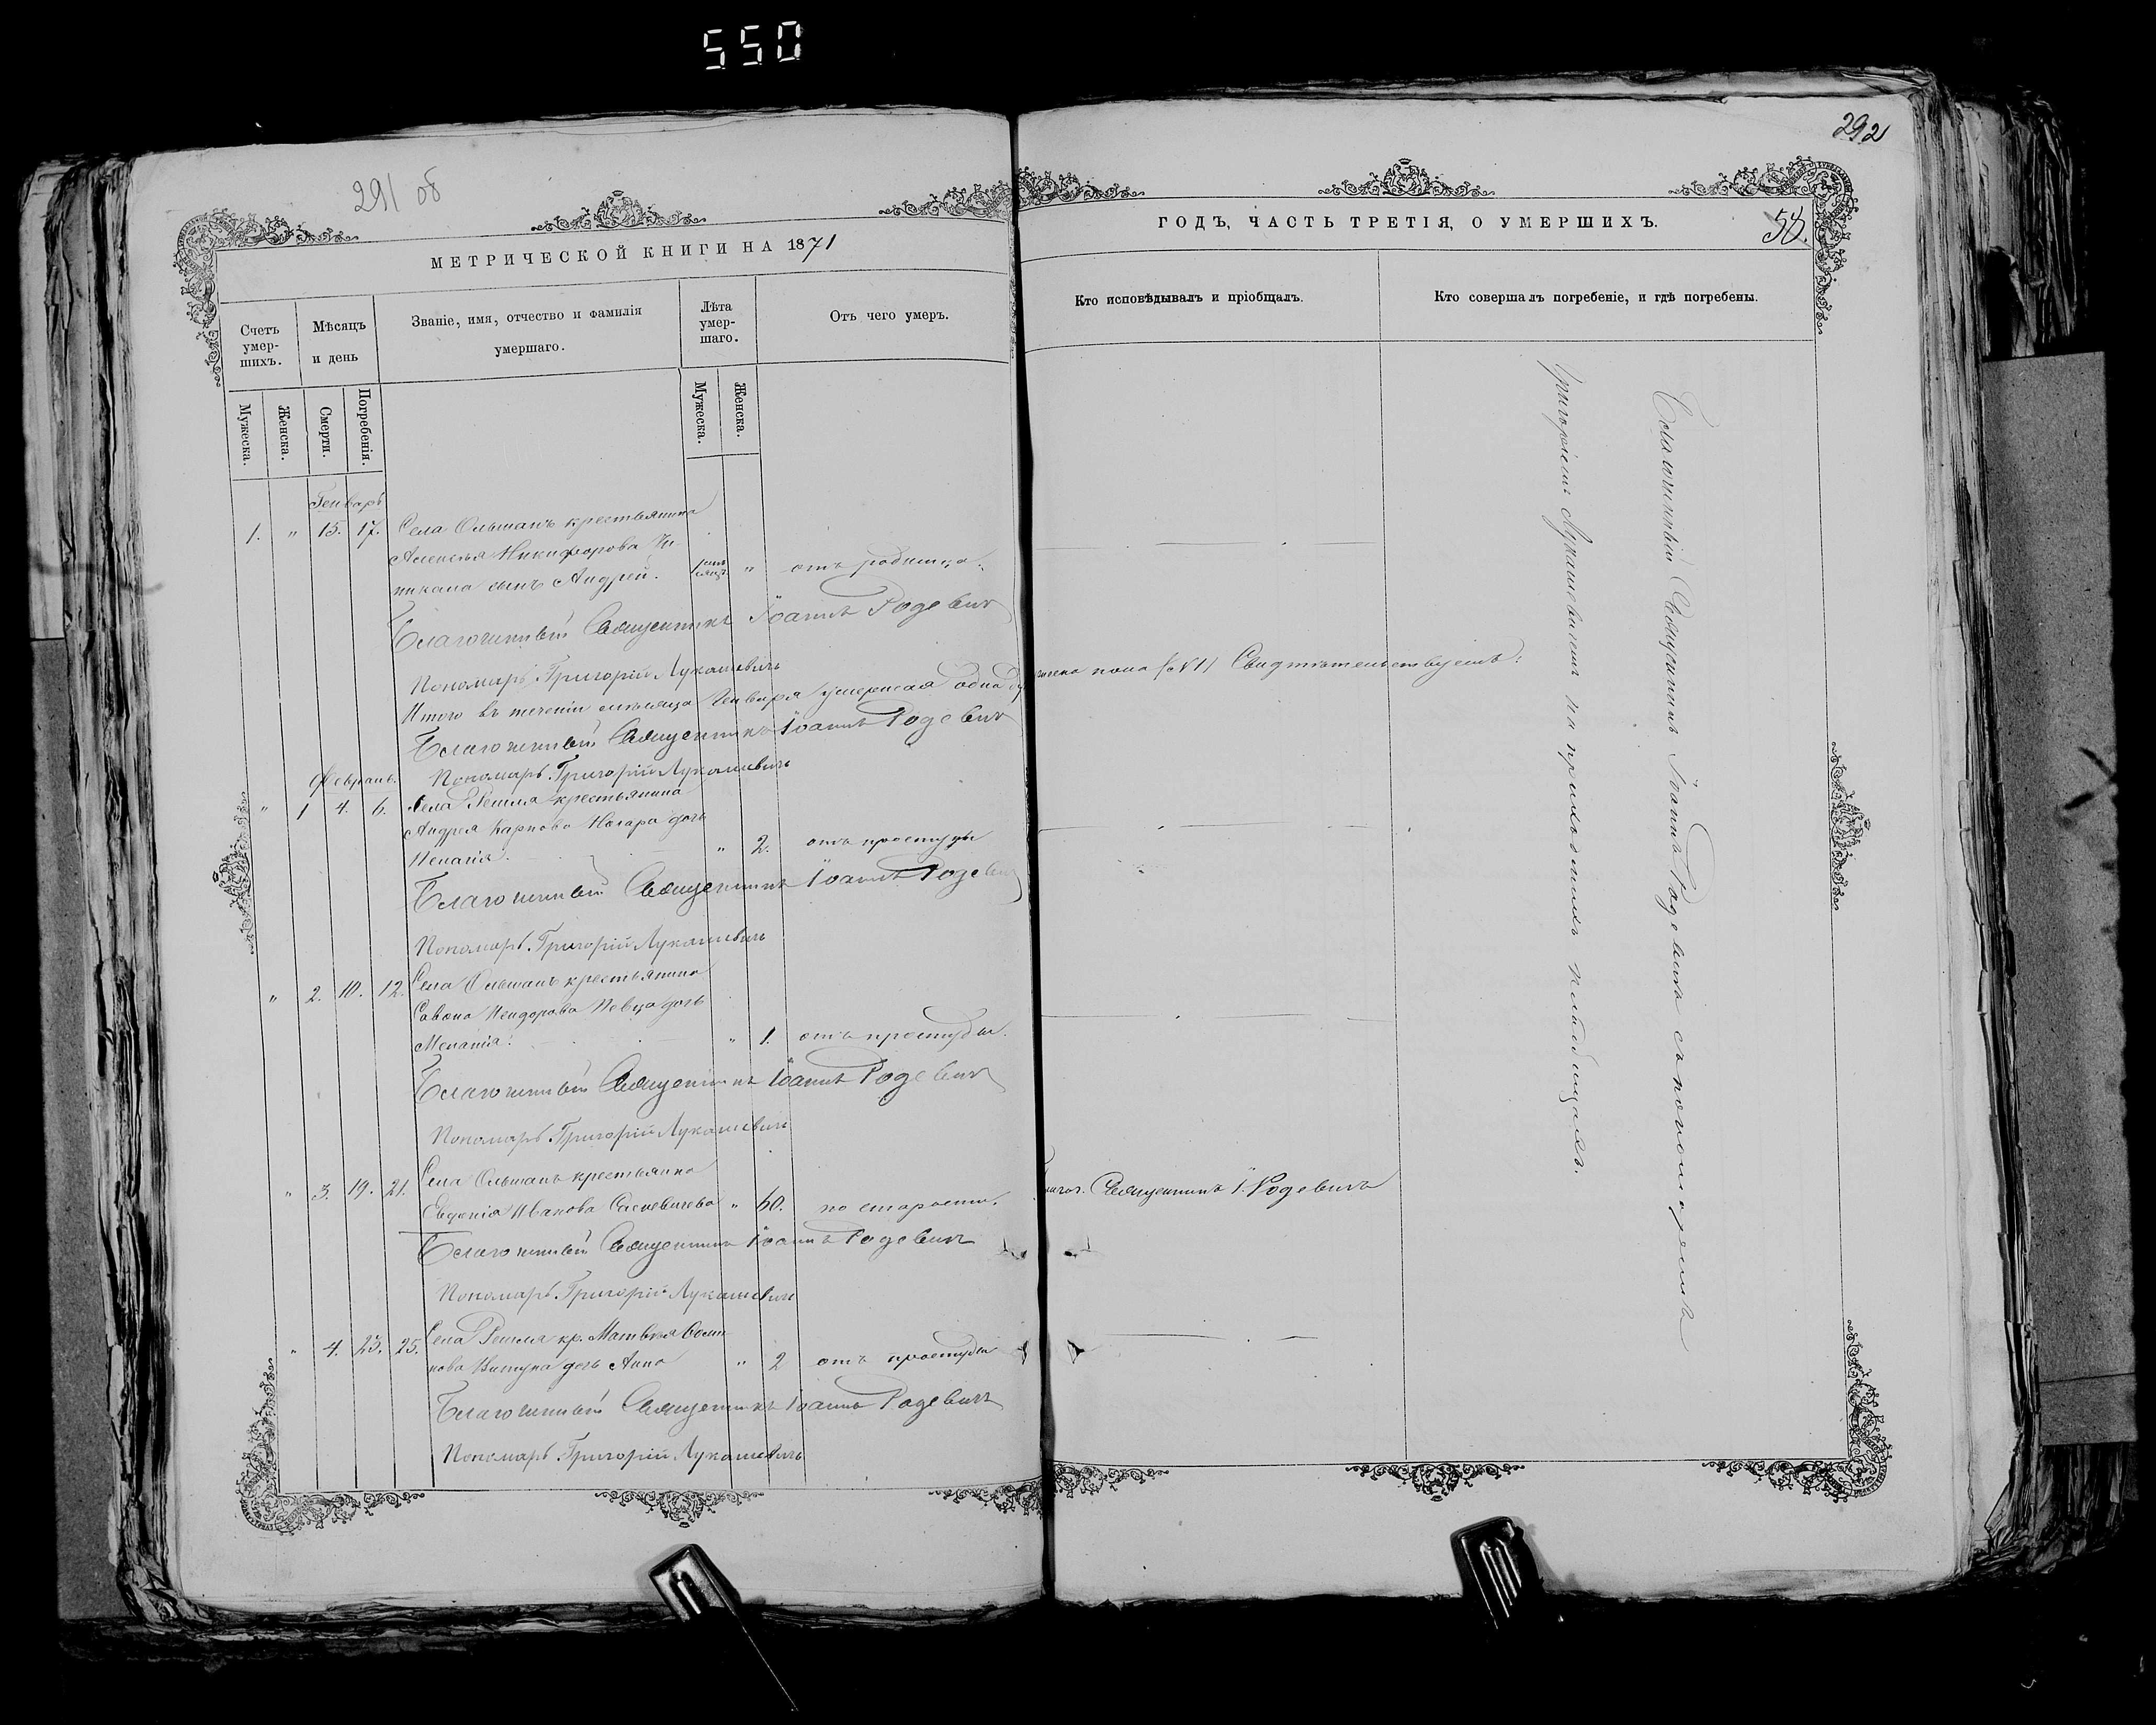 550
291 об
292
МЕТРИЧЕСКОЙ КНИГИ НА 1871
ГОДЪ, ЧАСТЬ ТРЕТІЯ, О УМЕРШИХЪ.
58.
Счетъ умер-
шихъ.
Мѣсяцъ
и день
Званіе, имя, отчество и фамилія
умершаго.
Лѣта
умер-
шаго.
Отъ чего умеръ.
Кто исповѣдывалъ и пріобщалъ.
Кто совершалъ погребеніе, и гдѣ погребены.
Мужеска.
Женска.
Смерти.
Погребенія.
Мужеска.
Женска.
Генварь
1. " 15. 17. Села Ольшанъ крестьянина
Алексѣя Никифорова
сынъ Андрей. 1 мѣ-
сяцъ. " отъ родимца.
Благочинный Священникъ Іоаннъ Родевич
Пономарь Григорій Лукашевичъ
Итого въ теченіи мѣсяца Генваря умершая одна
пола (№1) Свидѣтельствуемъ:
Благочинный Священникъ Іоаннъ Родевич
Пономарь Григорій Лукашевичъ
Февраль.
" 1 4. 6. Села Ремля крестьянина
Андрея Карпова дочь
" 2. отъ простуды
Благочинный Священникъ Іоаннъ Родевич
Пономарь Григорій Лукашевичъ
" 2. 10. 12. Села Ольшанъ крестьянина
Певца дочь
Меланія. " 1. отъ простуды.
Благочинный Священникъ Іоаннъ Родевич
Пономарь Григорій Лукашевичъ
" 3. 19. 21. Села Ольшанъ крестьянка
Евдокія Иванова " 60. по старости.
Священникъ І. Родевичъ
Благочинный Священникъ Іоаннъ Родевич
Пономарь Григорій Лукашевичъ
" 4. 23. 25. Села Ремля кр. Матвѣя Оси-
пова дочь Анна " 2 отъ простуды
Благочинный Священникъ Іоаннъ Родевичъ
Пономарь Григорій Лукашевичъ
Благочинный Священникъ Іоаннъ Родевичъ съ пономаремъ
Григоріемъ Лукашевичемъ на приходскихъ кладбищахъ.